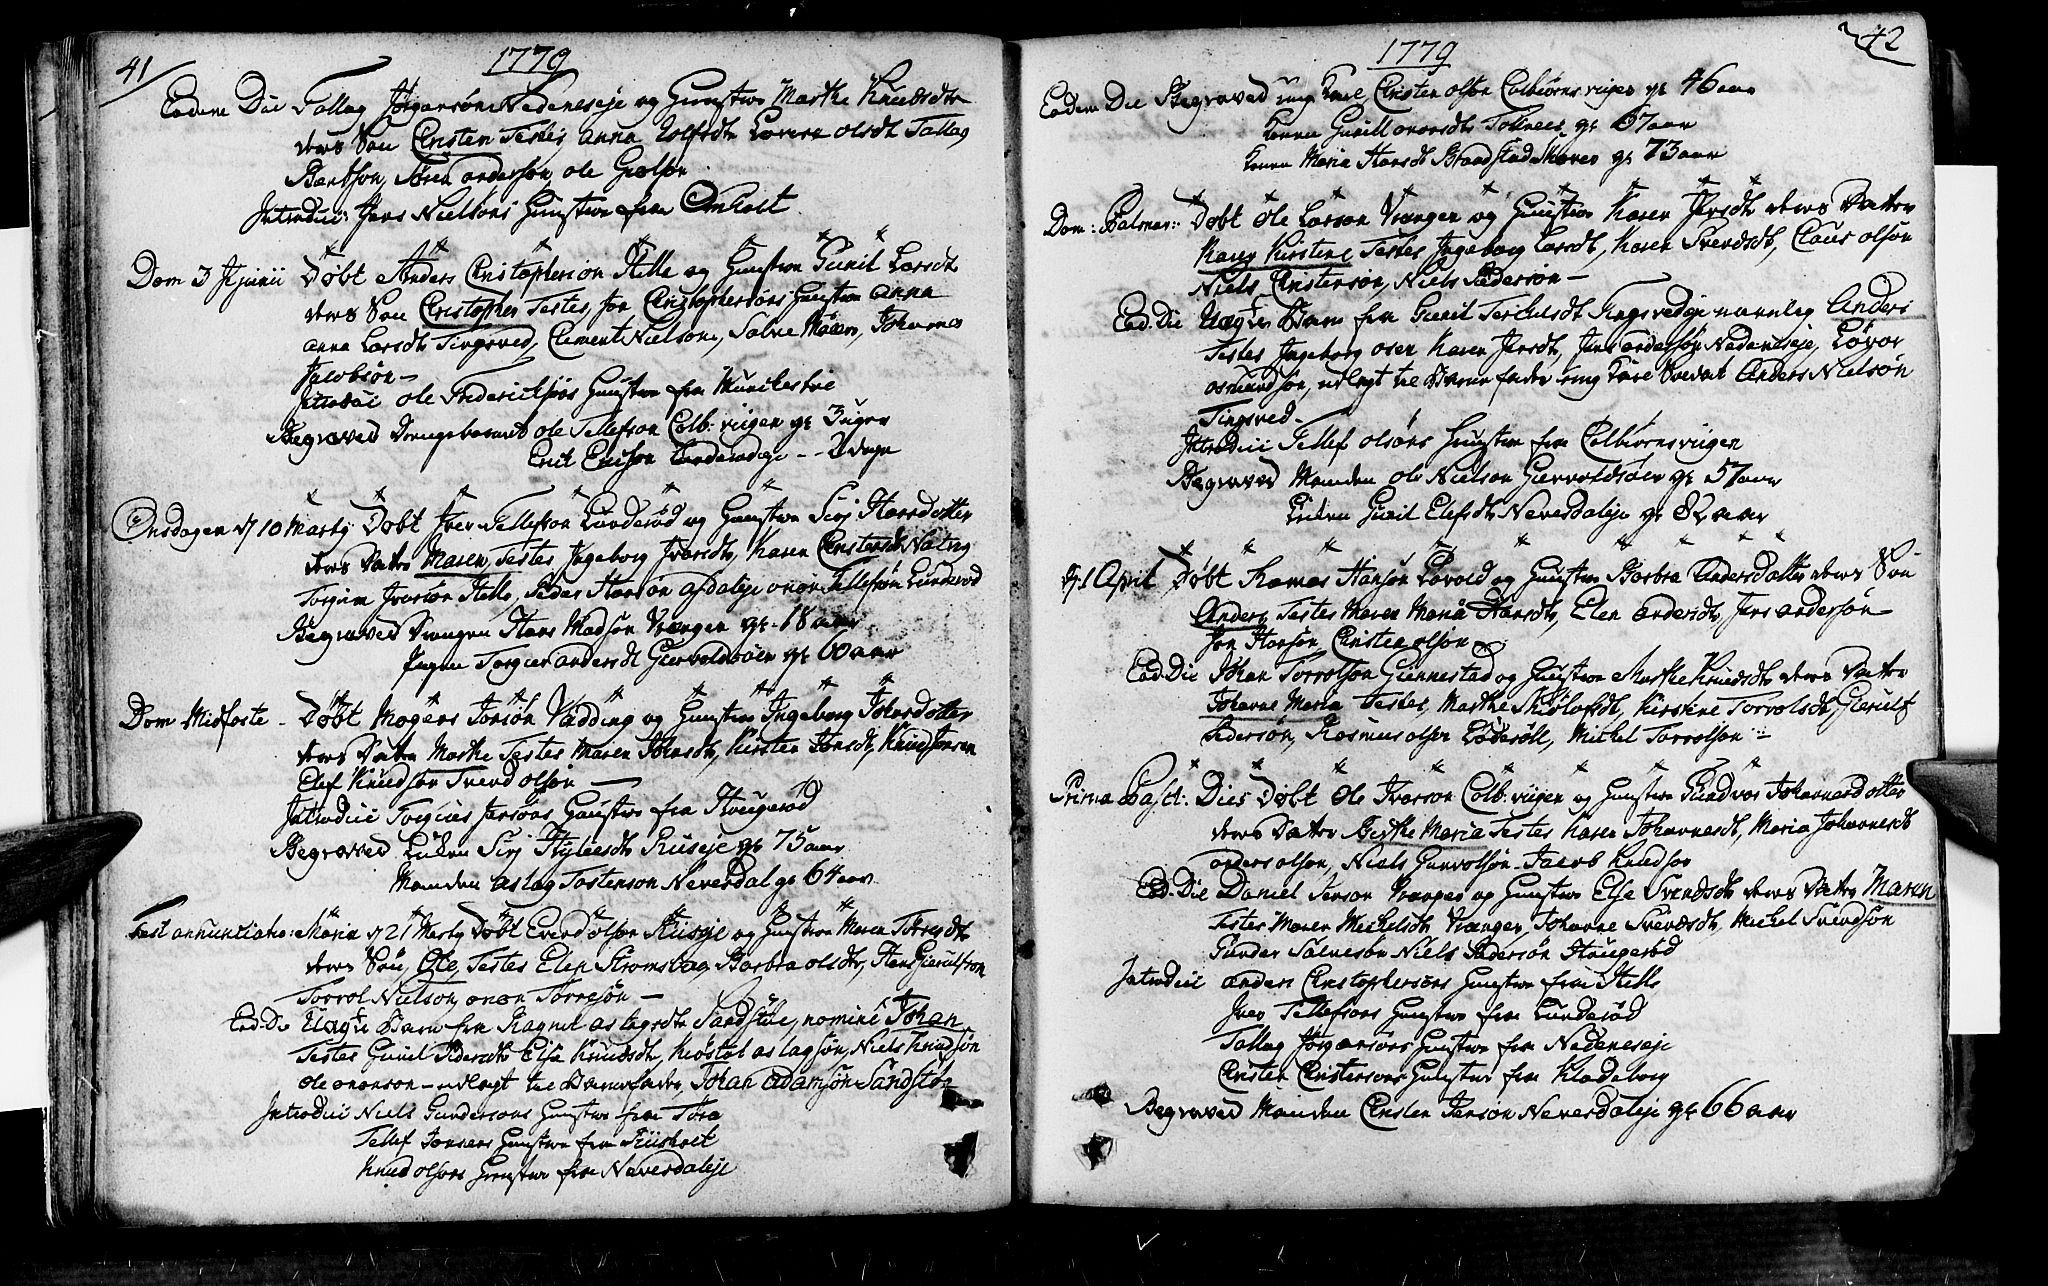 41
1779
Eadem Die Tallag Jørgensøn Nedeneseje og Hustrue Marthe Knudsdtr
deres Søn Christen Testes Anna Rolfsdtr Lovise olsdtr Tallag
Bentson, Søren anderssøn ole Gielsøn
Introduc: Jens Nielsøns Hustrue fra Omholt
Dom 3 Jejunii Døbt Anders Christophersøn Stelle og Hustrue Gunil Larsdtr
deres Søn Christopher Testes Jon Christophersøns Hustrue anna
anna Larsdtr Tingsved, Clement Nielson, Salve Móien, Johannes
Jacobsøn
Introduc ole Frederichsøns Hustrue fra Munikestie
Begraved Drengebarnet ole Tellefson Colb:viigen gl 3 uger
Erik Erichson - - 2 dage
Onsdagen d 10 Marty Døbt Iver Tellefsøn Lunderød og Hustrue Siri Hansdotter
deres Datter Maren, Testes Ingeborg Ivarsdtr, Karen Christensdtr Natvig
Torgrim Ivarsøn Stelle, Peder Hansøn afdaleje onon Tellefsøn Lunderød
Begraved Drengen Hans Madsøn Vrængen gl. 18 aar
Pigen Torgier andersdt Giervoldsøen gl 60 aar
Dom Midfaste - Døbt Mogens Jonsøn Vadding og Hustrue Ingeborg Johnsdotter
deres Datter Marthe Testes Maren Johnsdtr, Kirsten Jonsdtr, Knud Jensen
Elef Knudson Svend olsøn
Introduc Torgius Jensøns Hustrue fra Haugerød
Begraved Enken Siri Gyleesdtr Ruseje gl 75 aar
Manden aslag Tostenson Neverdal gl 64 aar
Fest annuntiatio: Maria d 21 Marty Døbt Evend olsøn Ruseje og Hustrue Maren Torresdtr
deres Søn, Ole, Testes Elen Strømsbog, Barbra olsdtr, Hans Gierulfson
Torrol Nielson, onon Torresøn
Ead. Die Uægte Barn fra Ragnil aslagsdtr Sandstøe, nomine Johan
Testes Gunil Pedersdtr Else Knudsdtr, Kiøstol aslagsøn, Niels Knudsøn
ole ononson - udlagt til Barnefader, Johan Adamsøn Sandstøe
Introduc Niels Gundersøns Hustrue fra Tøra
Tellef Jonsens Hustrue fra Riisholt
Knud olsøns Hustrue fra Neverdaleje
42
1779
Eadem Die Begraved ung Karl Christen olsøn Colbiørnsviigen gl 46 aar
Konen Gunill ononsdtr Tolnes gl 67 aar
Konen Maria Hansdt Braadstadmoren gl 73 aar
Dom: Palmar: Døbt Ole Larson Vrangen og Hustrue Karen Jensdt deres Datter
Karen Kirstine Testes Ingeborg Larsdt, Karen Svendsdt, Claus olsøn
Niels Christensøn, Niels Pedersøn
Ead. Die Uægte Barn fra Gunil Terkelsdt Tingsvedeje navnlig Anders
Testes Ingeborg osen Karen Jensdt, Jens andersøn Nedeneseje, Lovar
osmundson, udlagt til Barnefader ung Karl Soldat Anders Nielsøn
Tingsved
Introduc Tellef olsøns Hustrue fra Colbiørnsviigen
Begraved Manden ole Nielsøn Giervoldsøen gl 57 aar
Enken Gunil Elefsdt Neverdaleje gl 82 aar
d 1 April Døbt Thomas Hansøn Løvold og Hustrue Barbra Andersdotter deres Søn
Anders Testes Maren Maria Hansdt, Elen andersdt, Jens andersøn
Jon Hansøn, Christen olsøn
Ead. Die Johan Torrolson Ginnestad og Hustrue Marthe Knudsdt deres Datter
Johanne Maria Testes, Marthe Kiøstolsdt, Kirstine Torrolsdt, Gierulf
Pedersøn, Rasmus olsen Lødesøll, Michel Torrolson
Prima Pasch: Dies Døbt Ole Ivarsøn Colb:viigen og Hustrue Gundvor Johannesdotter
deres Datter Berthe Maria Testes Karen Johannesdt, Maria Johannesdt
anders olsøn, Niels Gunvolsøn Jacob Knudsøn
Ead. Die Daniel Jensøn Vrangen og Hustrue Else Svendsdt deres Datter Maren
Testes Maren Michelsdt Vrængen, Johanne Svendsdt, Michel Svendsøn
Gunder Salvesøn Niels Pedersøn Haugerød
Introduc anders Christophersøns Hustrue fra Stelle
Iver Tellefsøns Hustrue fra Lunderød
Tallag Jørgensøns Hustrue fra Nedeneseje
Christen Christensøns Hustrue fra Kladeborg
Begraved Manden Christen Jensøn Neverdaleje gl 66 aar